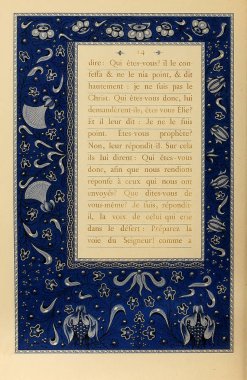 14
dire: Qui êtes-vous? il le con-
fessa & ne le nia point, & dit
hautement : je ne suis pas le
Christ. Qui êtes-vous donc, lui
demandèrent-ils, êtes vous Elie?
Et il leur dit : Je ne le suis
point. Etes-vous prophète?
Non, leur répondit-il. Sur cela
ils lui dirent : Qui êtes-vous
donc, afin que nous rendions
réponse à ceux qui nous ont
envoyés? Que dites-vous de
vous-même? Je suis, répondit-
il, la voix de celui qui crie
dans le désert : Préparez la
voie du Seigneur! comme a